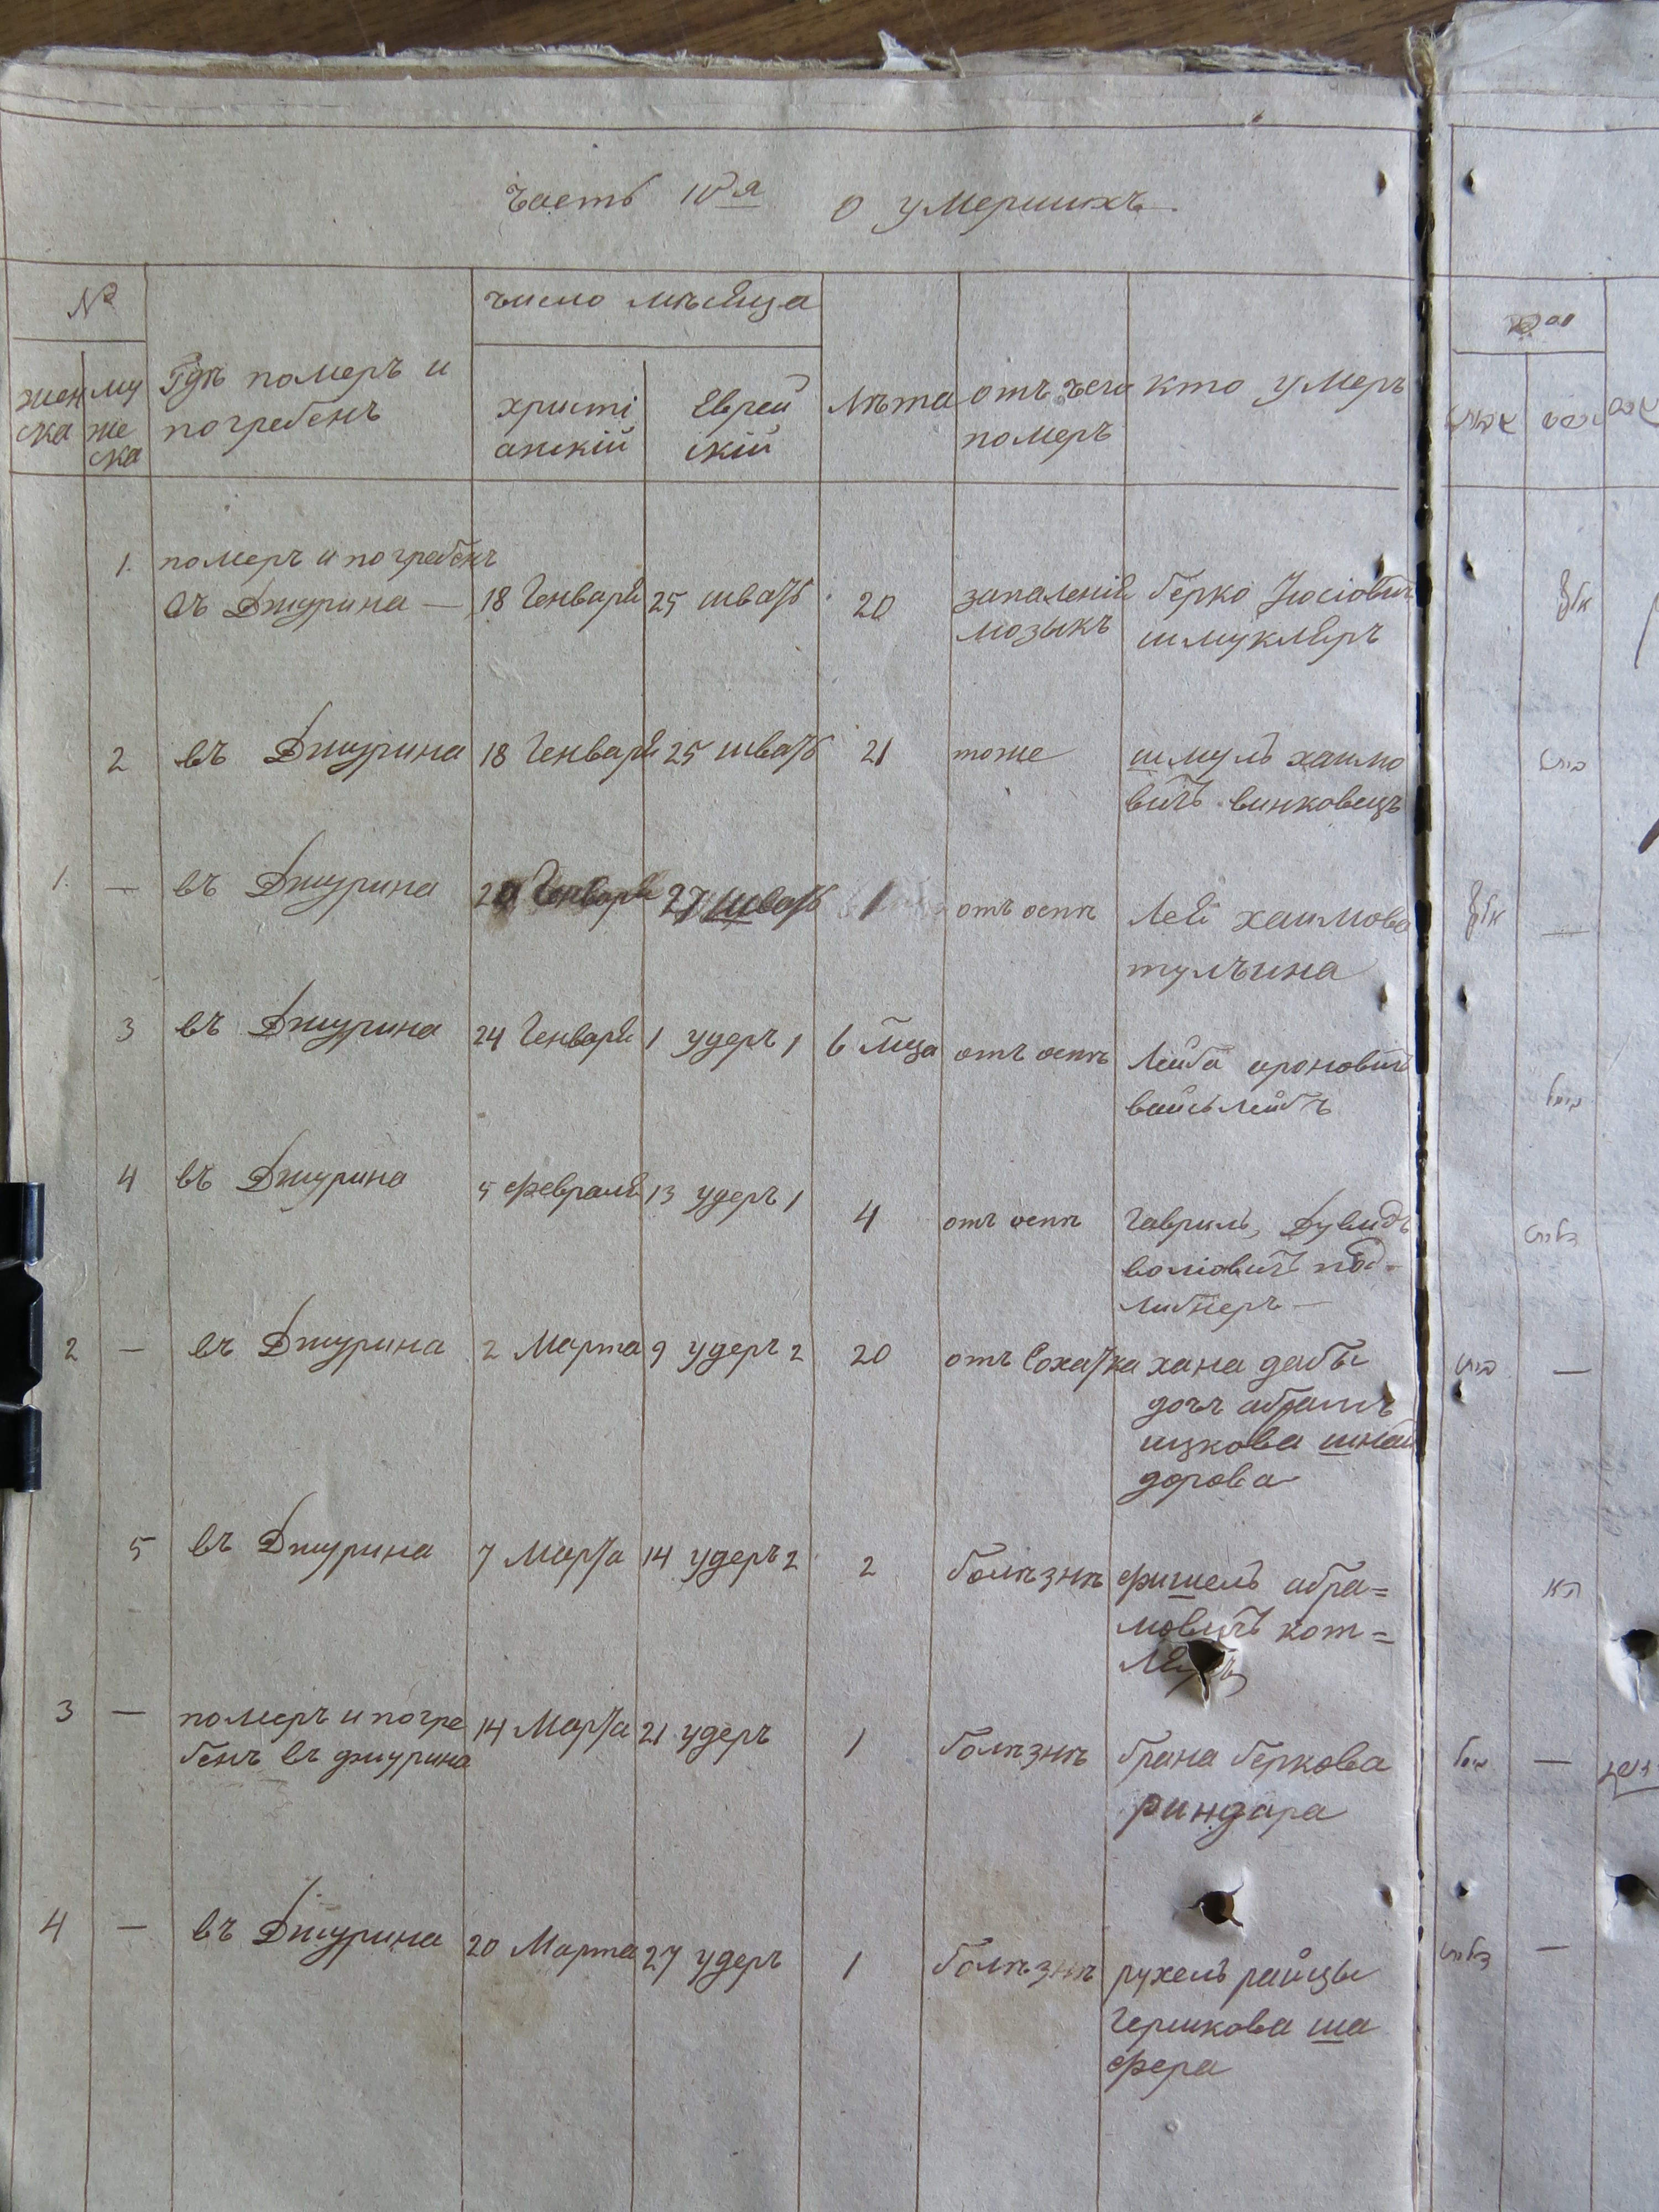 Часть IVя о умерших
№
число мѣсяца
жен
ска
му
же
ска
Гдѣ померъ и
погребенъ
христі
анскій
Еврей
скій
Лѣта
отъ чего
померъ
кто умеръ
1. померъ и погребенъ
въ Джурина — 18 Генваря 25 шватъ 20 запаленія Берко Іосіович
мозыкъ шмукляръ
2 въ Джурина 18 Генваря 25 шватъ 21 тоже шмуль хаимо
вичъ винковецъ
1. — въ Джурина 20 Генваря 27 шватъ 1 отъ оспѣ Лея хаимова
тулчина
3 въ Джурина 24 Генваря 1 удеръ 1 6 мца отъ оспѣ Лейба ароновичъ
вайслейбъ
4 въ Джурина 5 февраля 13 удеръ 1 4 отъ оспѣ Гаврилъ, Дувидъ
волковичъ под-
либнеръ —
2 — въ Джурина 2 Марта 9 удеръ 2 20 отъ Сохатка хана дабы
дочъ абрамъ
ицкова шнай
дорова
5 въ Джурина 7 Марта 14 удеръ 2 2 болѣзнѣ фишель абра=
мовичъ кот=
ляръ
3 — померъ и погре 14 Марта 21 удеръ 1 болѣзнѣ брана беркова
бенъ въ джурина риндара
4 — въ Джурина 20 Марта 27 удеръ 1 болѣзнѣ рухель райцы
Гершкова ша
фера